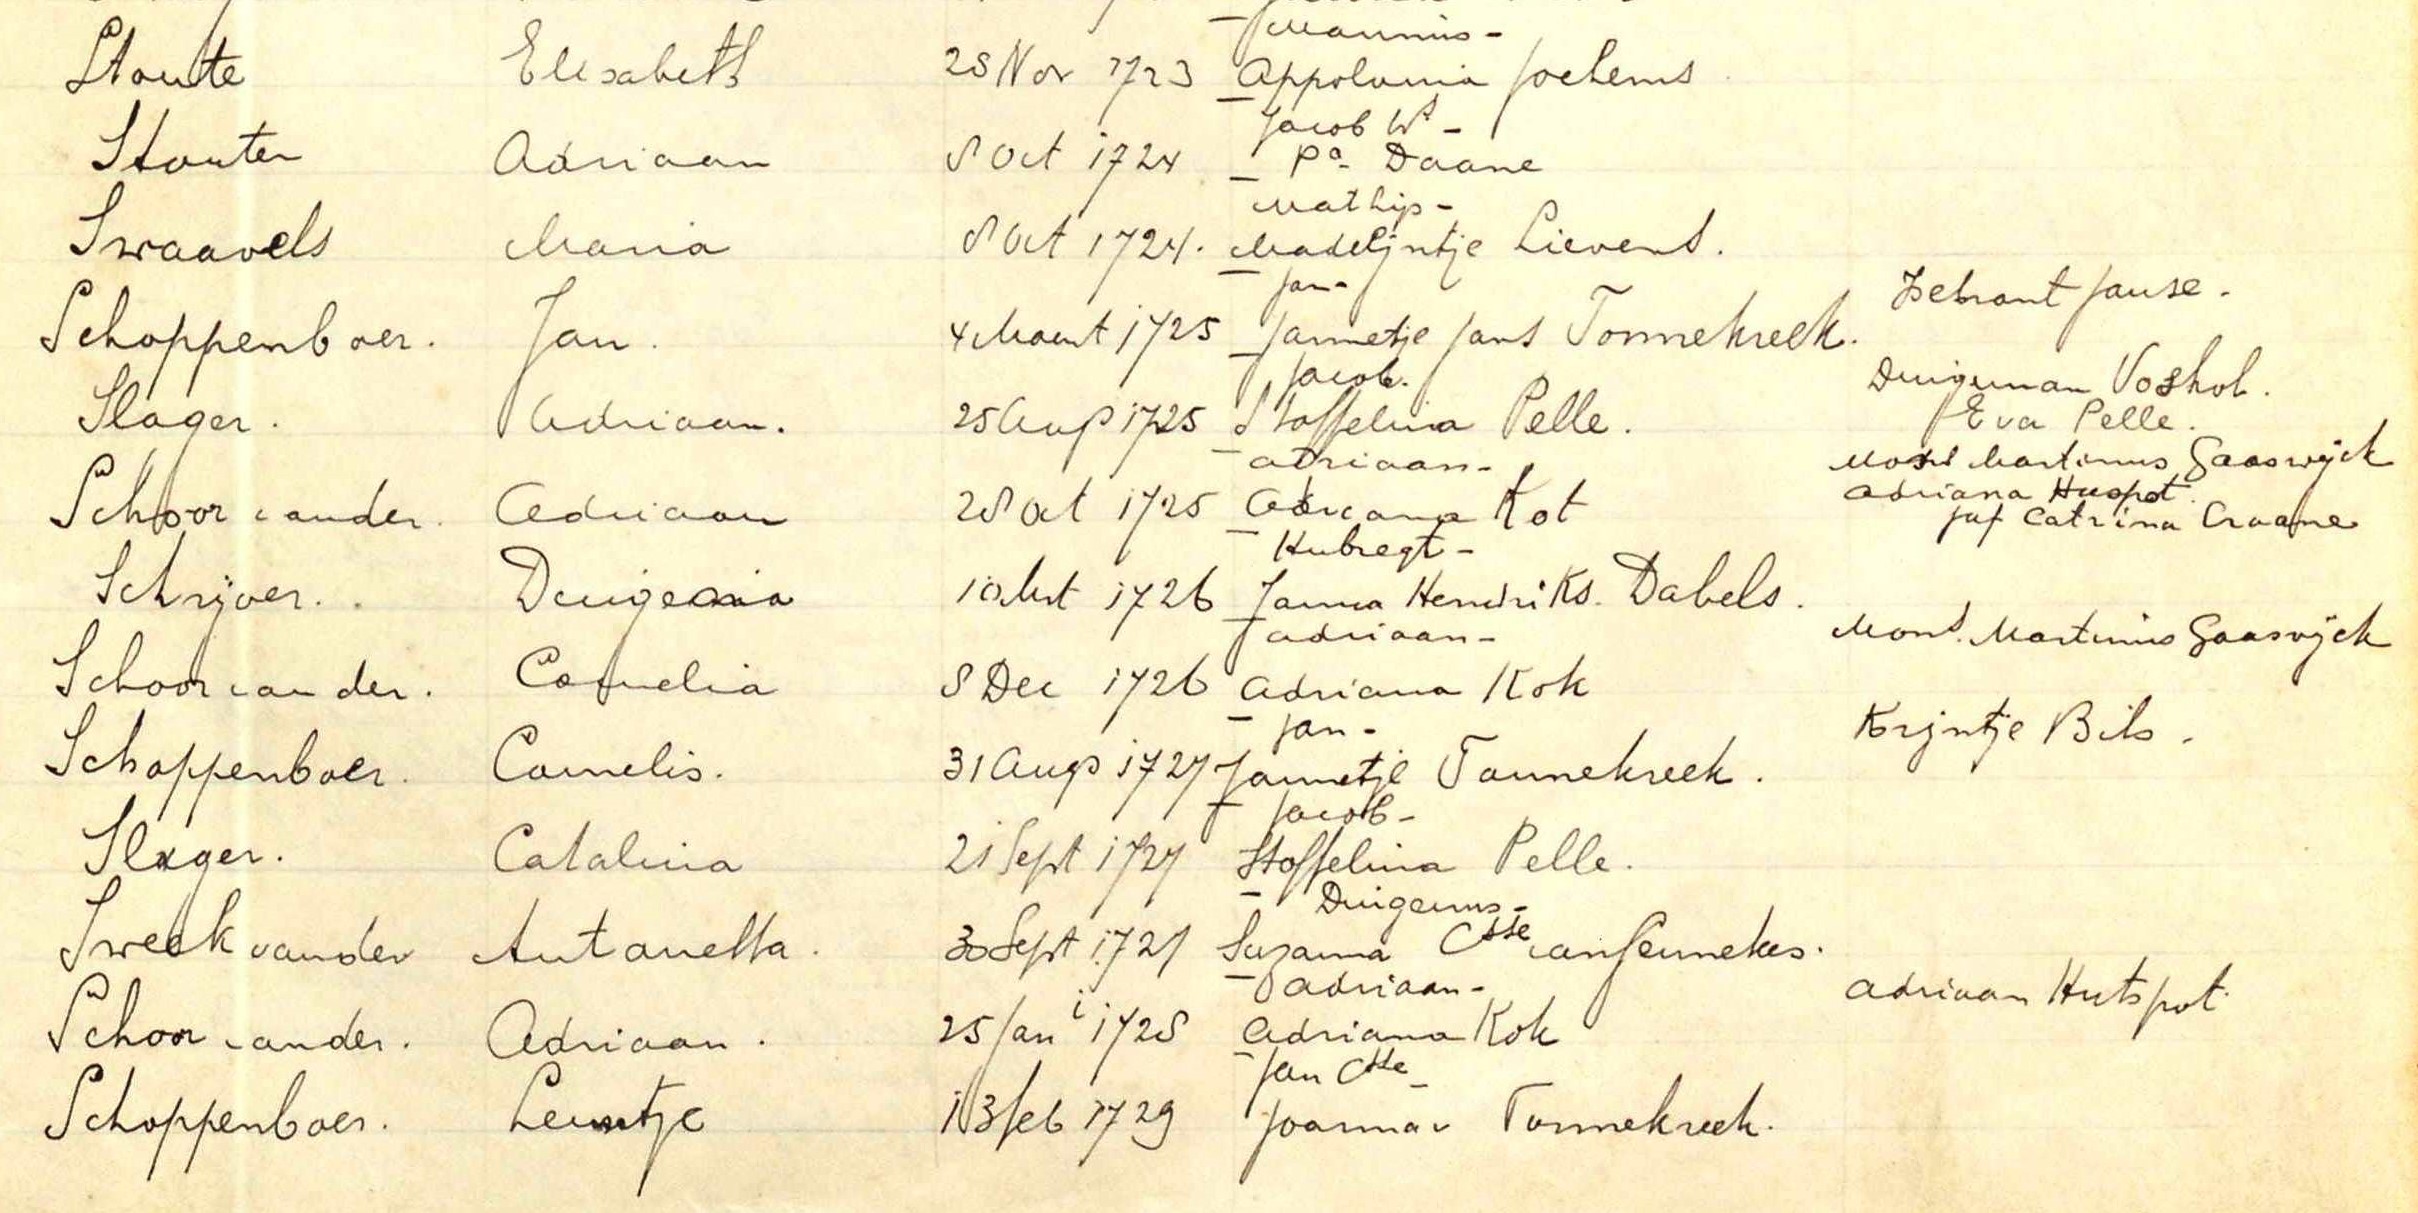 Marinus -
Stoute Elisabeth 28 Nov 1723 Appolonia Jochems
Jacob Ws -
Stouter Adriaan 8 Oct 1724 Pa. Daane
Mathijs -
Swaavels Maria 8 Oct 1724. Madelijntje Lievens.
Jan - IJebrant Janse.
Schoppenboer. Jan. 4 Maart 1725 Jannetje Jans Tonnekreek.
Jacob. Duijgeman Voshol.
Slager. Adriaan. 25 Aug 1725 Stoffelina Pelle. Eva Pelle.
Adriaan - Mons Martinus Gaaswijck
Schoor vander. Adriaan 28 Oct 1725 Adreana Kot Adriana Huspot.
Juf Catrina Craane
Hubregt -
Schrijver. 10 Mrt 1726 Janna Hendriks. Dabels.
Adriaan - Mons. Martinus Gaaswijck
Schoor van der. Cornelia 8 Dec 1726 Adriana Kok
Jan - Krijntje Bils.
Schoppenboer. Cornelis. 31 Aug 1727 Jannetje Tonnekreek.
Jacob -
Slager. Catalina 21 Sept 1727 Stoffelina Pelle.
Duigenus -
Sweek vander Antonetta. 30 Sept 1727 Suzanna Csse van Sennekes.
Adriaan - Adriaan Hutspot
Schoor vander. Adriaan. 25 Jan 1728 Adriana Kok
Jan Csse -
Schoppenboer. Leuntje 13 feb 1729 Joanna v Tonnekreek.